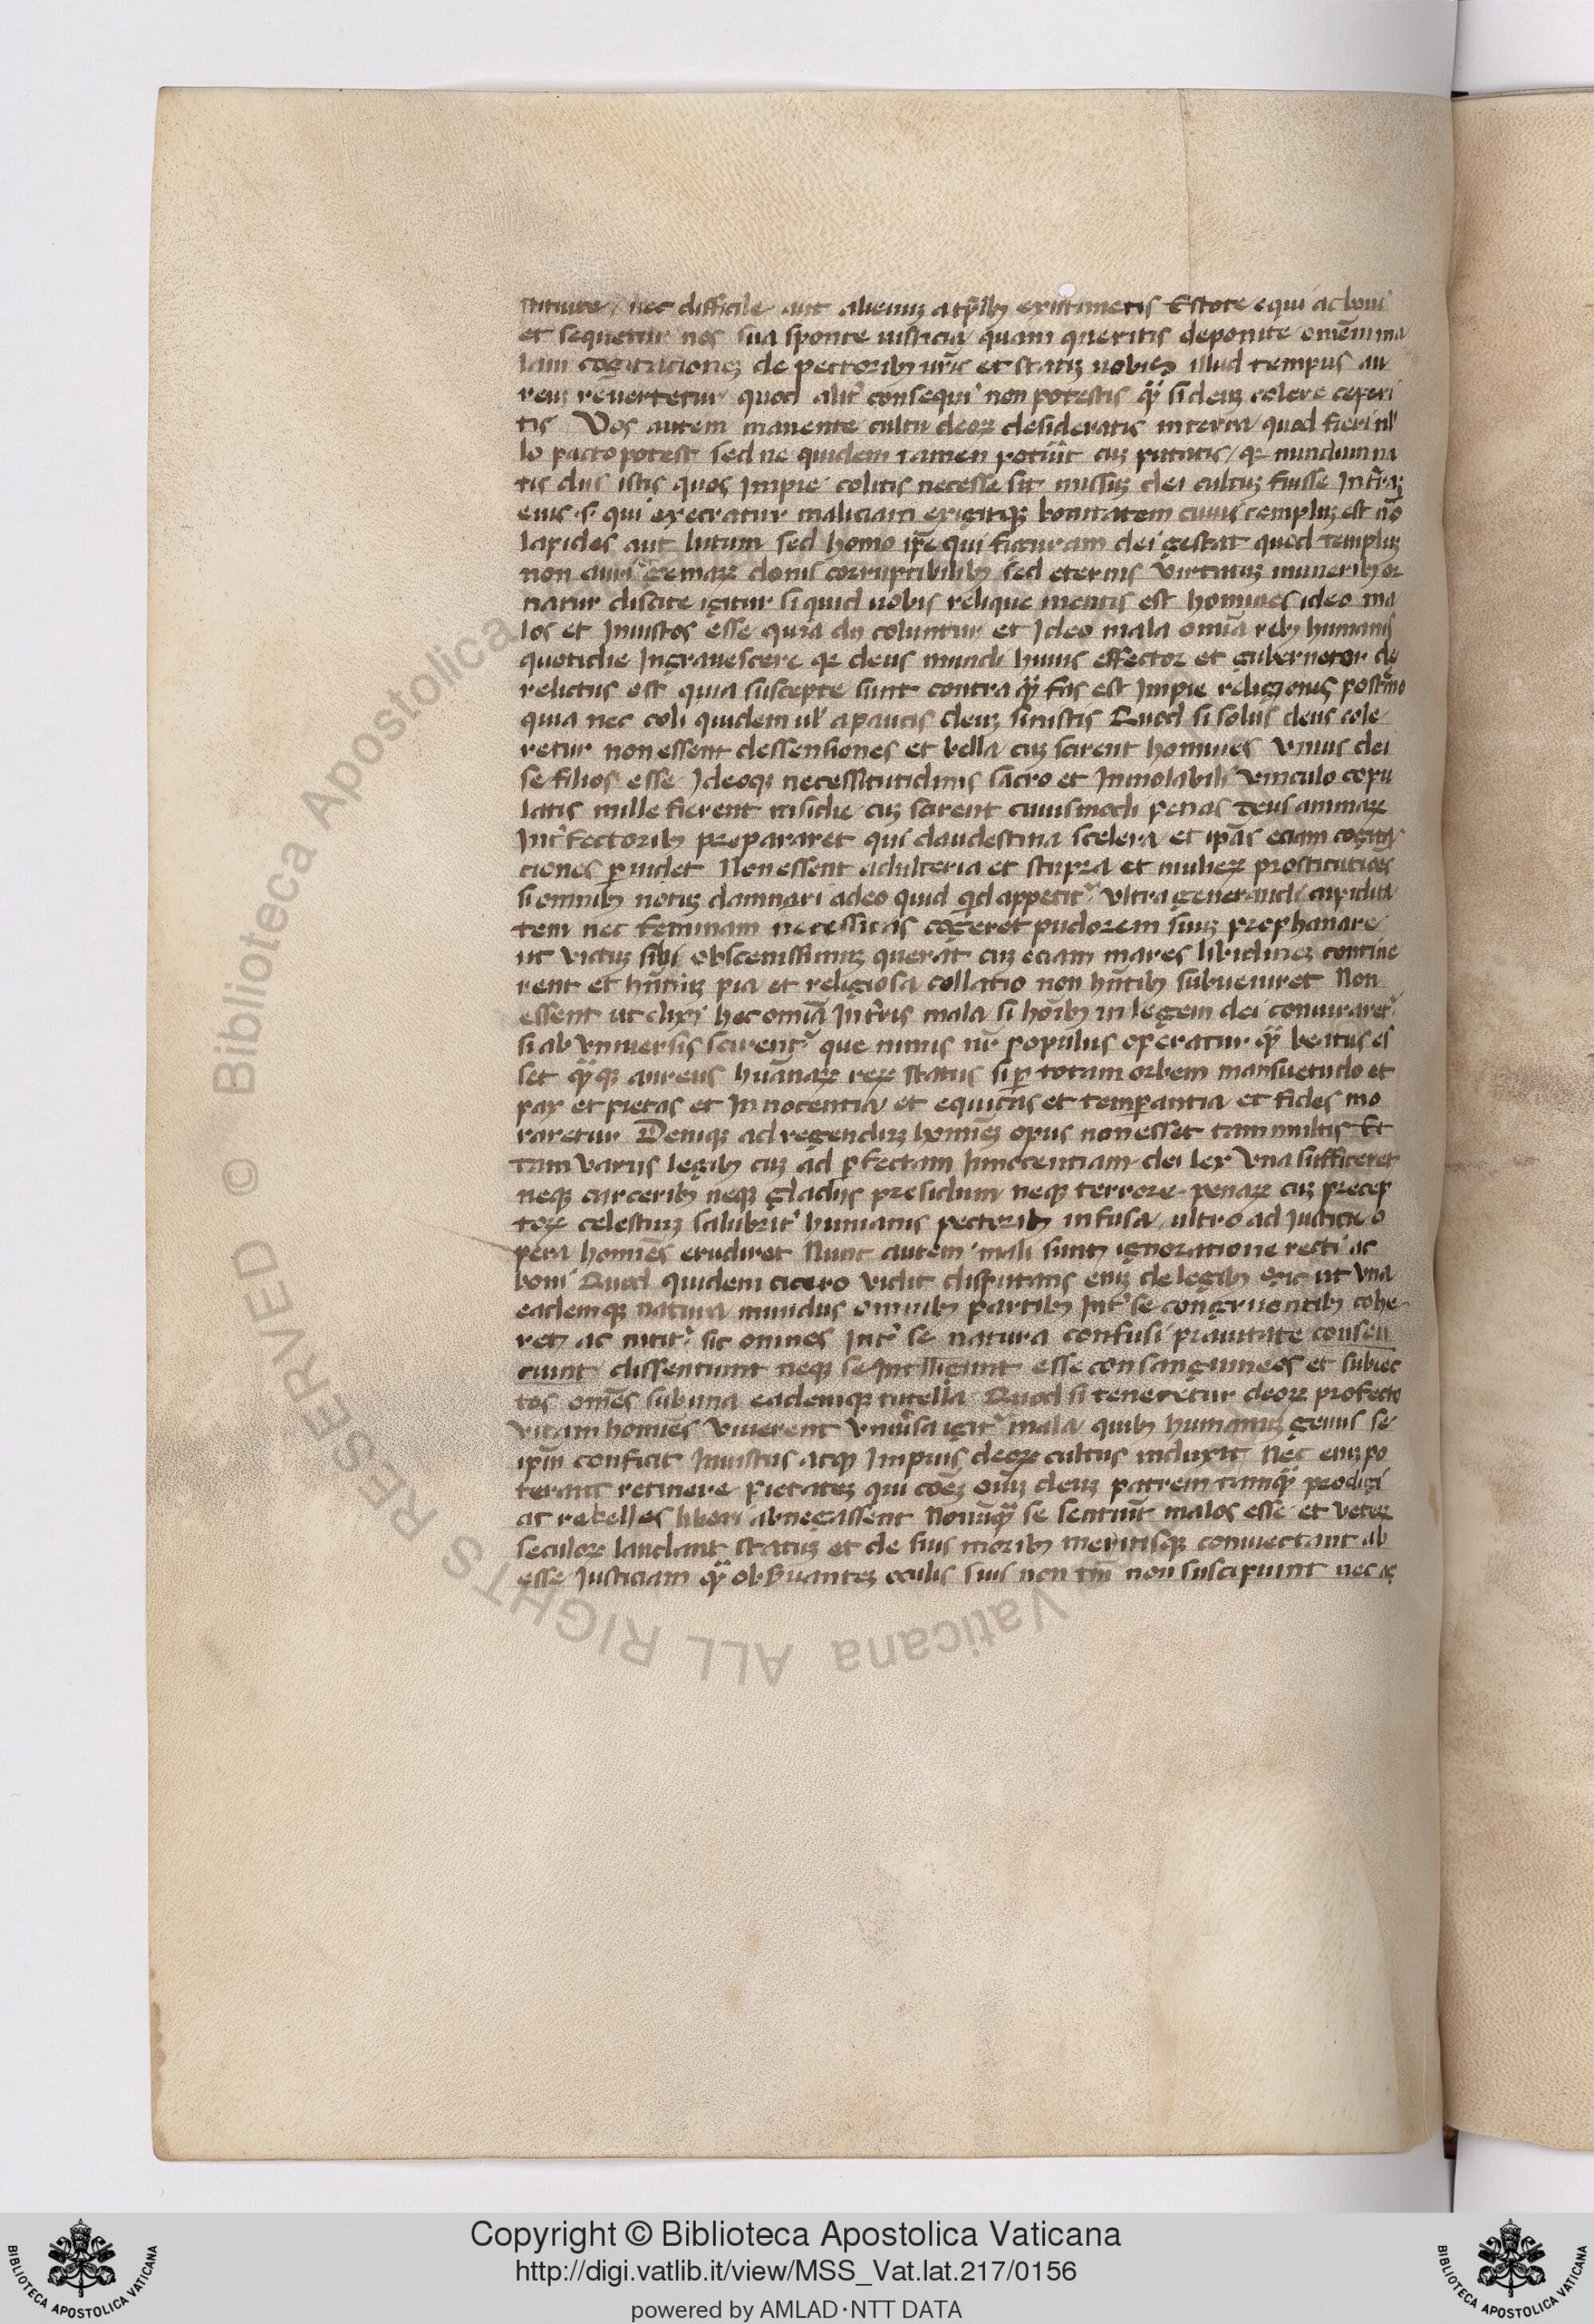 stitute / nec difficile aut alienuz a tp̄ib3 existimetis Estote equi ac boni
et sequetur nos sua sponte iusticia quam queritis deponite om̄em ma
lam cogitacionez de pectorib3 ur̄is et statiz uobis illud tempus au
reuz reuertetur quod alit̓ consequi non potestis q̄ si deuz colere ceperi
tis Vos autem manente cultu deoꝝ desideratis in terra quod fieri nll̓
lo pacto potest sed ne quidem tamen potuit̄ cuz putatis / qꝛ nundum na
tis diis istis quos Impie colitis necesse sit missuz dei cultuz fuisse In t̄raz
eius .s. qui execratur maliciam exigitqꝫ bonitatem cuius templuz est nō
lapides aut lutum sed homo ip̄e qui figuram dei gestat quod templuz
non auri gemaꝝ donis corruptibilib3 sed eternis Virtutuz munerib3 or
natur discite igitur si quid uobis relique mentis est homines ideo ma
los et Iniustos esse quia dii coluntur et Ideo mala om̄ia reb3 humanis
quotidie Ingrauescere qꝛ deus mundi huius effector et gubernator de
relictus est quia suscepte sunt contra q̄ fas est Impie religionis postr̄mo
quia nec coli quidem ul̓ a paucis deuz sinistis Quod si solus deus cole
retur non essent dessensiones et bella cuz scirent homines Vnius dei
se filios esse Ideoqꝫ necessitutidinis sacro et Inuiolabili vinculo copu
latis nulle fierent insidie cuz scirent cuiusmodi penas deus animaꝝ
Int̓fectorib3 prepararet qui clandestina scelera et ip̄as eciam cogita
ciones p̱uidet Non essent adulteria et stupra et mulieꝝ prostitutiões
si omnib3 notuz damnari a deo quid qd appetit̓ Vltra generandi cupidita
tem nec feminam necessitas cogeret pudorem suuz prophanare
ut victuz sibi obscenissimuz querat cuz eciam mares libidinez contine
rent et hn̄tiuz pia et religiosa collatio non hn̄tib3 subueniret Non
essent ut dixi hec om̄ia In t̓ris mala si hoīb3 in legem dei coniuraret̓
si ab Vniuersis scirent̓ que nunus nr̄ populus operatur q̄ beatus es
set q̄qꝫ aureus hūanaꝝ reꝝ status si p̱ totam orbem mansuetudo et
pax et pietas et Innocentia et equitas et temp̱antia et fides mo
raretur Deniqꝫ ad regenduz hom̄iez opus non esset tam multis Et
tam variis legib3 cuz ad p̱fectam Innocentiam dei lex Vna sufficeret
neqꝫ carcerib3 neqꝫ gladiis presidum neqꝫ terrore penaꝝ cuz precep
toꝝ celestiuz salubrit̓ humanis pectorib3 infusa ultro ad Iusticie o
pera homiēs erudiret Nunc autem mali sunt ignoratione recti ac
boni Quod quidem cicero vidit disputans eniz de legib3 sic ut vna
eademqꝫ natura mundus omnib3 partib3 Int̓ se congruentib3 cohe
ret ac nitit̓ sic omnes Int̓ se natura confusi prauitate consen
ciunt dissentiunt neqꝫ se Intlligunt esse consanguineos et subiec
tos om̄es sub una eademqꝫ tutella Quod si teneretur deoꝝ profecto
vitam homiēs viuerent Vniūsa igit̓ mala quib3 humanuz genus se
ip̄m conficit Iniustus atqꝫ Impius deoꝝ cultus induxit Nec eniz po
terant retinere pietatez qui cōez oīuz deuz patrem tanq̄ prodigi
ac rebelles liberi abnegassent Nonūq̄ se sentiūt malos esse et veteꝝ
seculoꝝ laudant statuz et de suis morib3 meritisqꝫ coniuectant ab
esse Iusticiam q̄ obuuantez oculis suis non tm̄ non suscipiunt nec ag
Copyright © Biblioteca Apostolica Vaticana
http://digi.vatlib.it/view/MSS_Vat.lat.217/0156
powered by AMLAD·NTT DATA